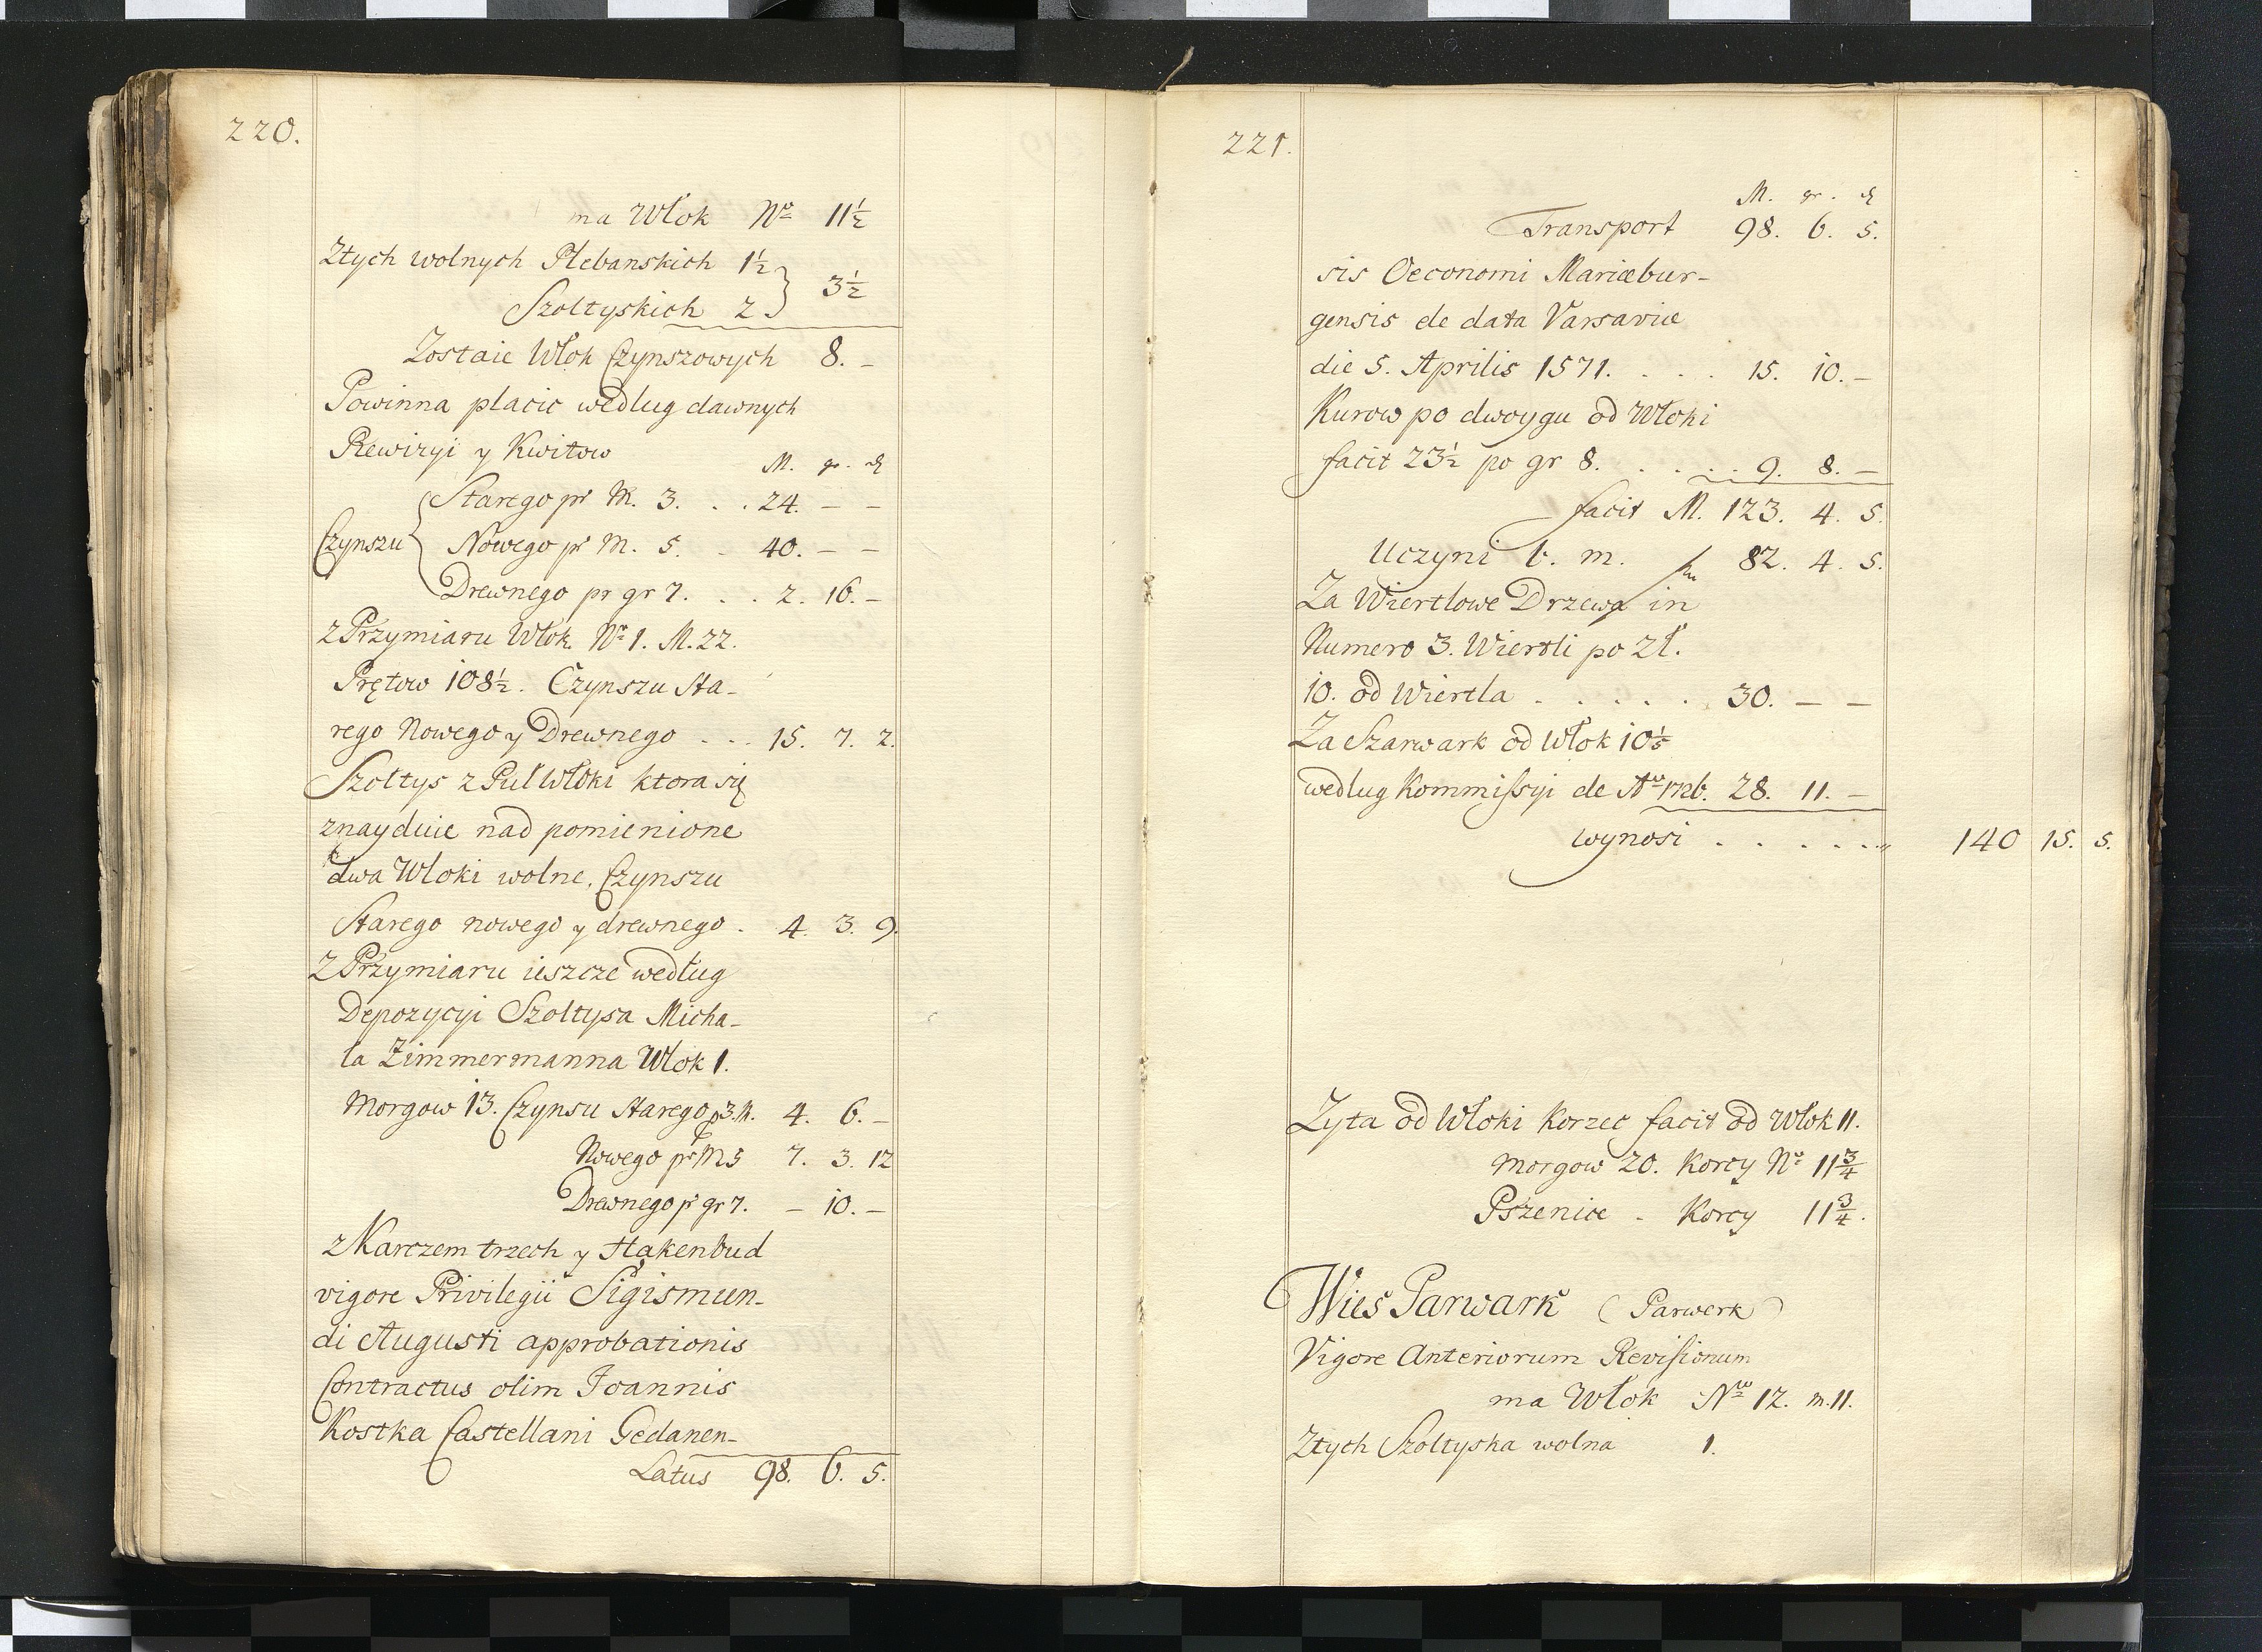 220.
ma Włok Nro 11½
Ztych wolnych Plebanskich 1½ } 3½
Szoltyskich 2
Zostaie Włok Czynszowych 8. –
Powinna placic wedlug dawnych
Rewizyi y Kwitow
M. gr. ₰
Czynszu { Starego pr M. 3. . . 24. – –
Nowego pr M. 5. . 40. – –
Drewnego pr gr 7. . . 2. 16. –
z Przymiaru Włok. Nro 1. M. 22.
Prętow 108½. Czynszu Sta-
rego Nowego y Drewnego . . . 15. 7. 2.
Szoltys z Puł Włoki ktora się
znayduie nad pomienione
dwa Wloki wolne, Czynszu
Starego nowego y drewnego . 4. 3. 9.
Z Przymiaru ieszcze według
Depozycyi Szoltysa Micha-
la Zimmermanna Wlok 1.
Morgow 13. Czynsu Starego p 3. M. 4. 6. –
Nowego pr M 5 7. 3. 12
Drewnego pr gr 7. – 10. –
z Karczem trzech y Hakenbud
vigore Privilegii Sigismun-
di Augusti approbationis
Contractus olim Joannis
Kostka Castellani Gedanen-
Latus 98. 6. 5.
221.
M. gr. ₰
Transport 98. 6. 5.
sis Oeconomi Mariæbur-
gensis de data Varsaviæ
die 5. Aprilis 1571. . . . 15. 10. –
Kurow po dwoygu od Włoki
facit 23½ po gr 8. . . . . 9. 8. –
facit M. 123. 4. 5.
Uczyni b. m. 82. 4. 5.
Za Wiertlowe Drzewa in
Numero 3. Wiertli po Zł.
10. od Wiertla . . . . . 30. – –
Za Szarwark od Włok 10⅕
wedlug Kommissyi de Ao 1726. 28. 11. –
wynosi . . . . . . 140 15. 5.
Zyta od Włoki Korzec facit od Włok 11.
Morgow 20. Korcy Nro 11¾
Pszenice . Korcy 11¾.
Wies Parwark (Parwerk)
Vigore Anteriorum Revisionum
ma Włok Nro 12. m. 11.
Ztych Szoltyska wolna 1.